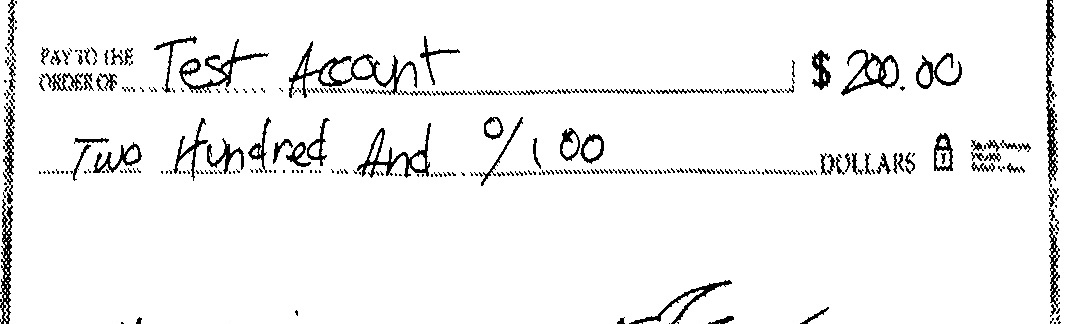 PAY TO THE
ORDER OF Test Account $ 200.00
Two Hundred And 0/100 DOLLARS